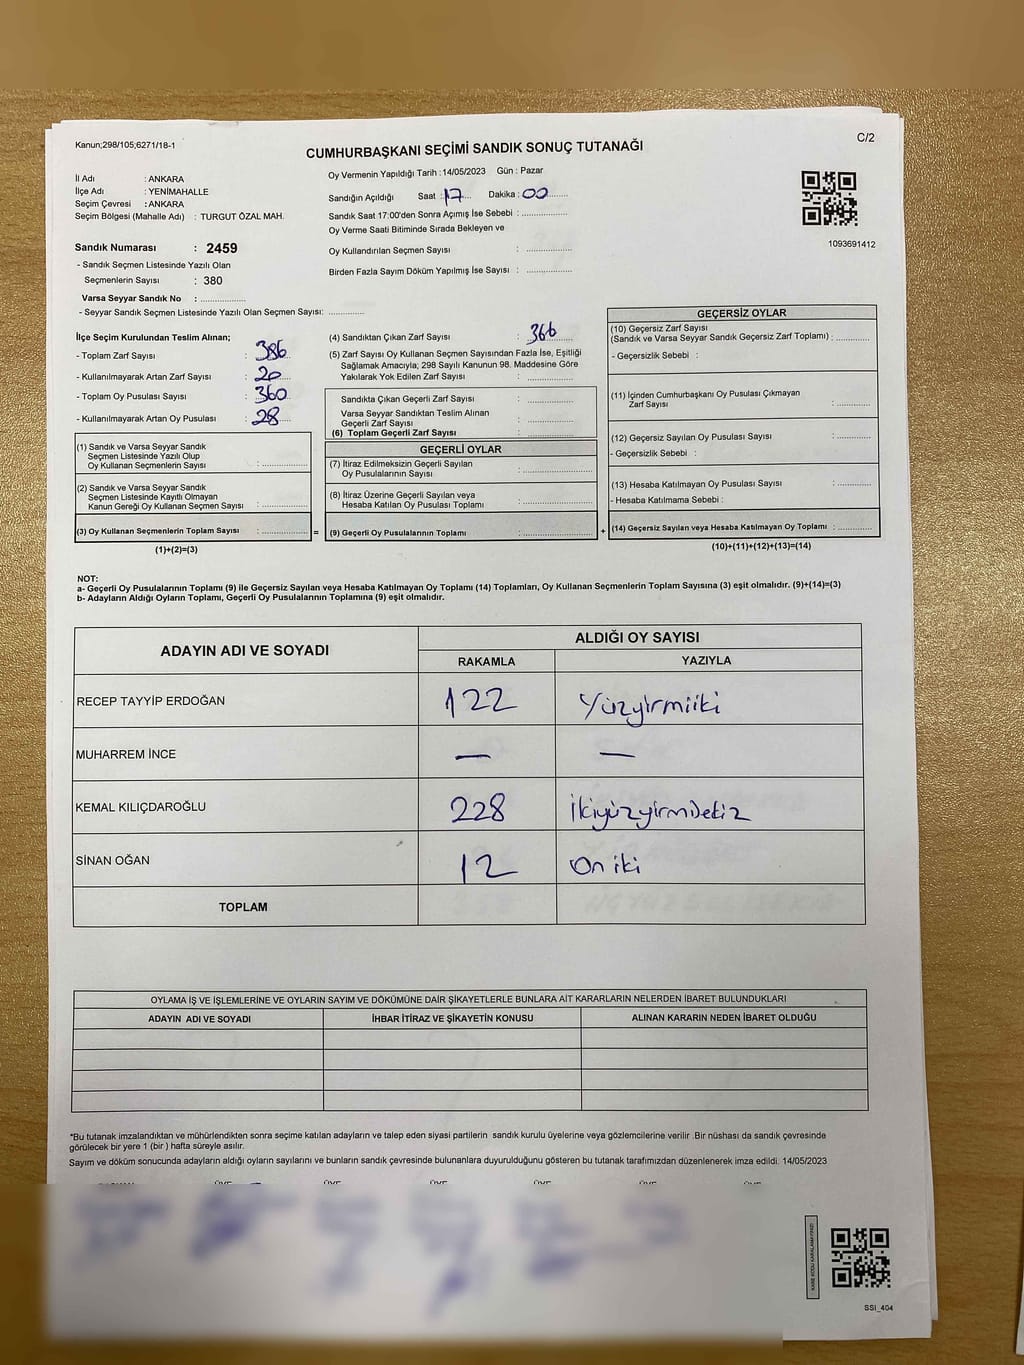 Kanun;298/105;6271/18-1
C/2
CUMHURBAŞKANI SEÇİMİ SANDIK SONUÇ TUTANAĞI
İl Adı : ANKARA
İlçe Adı : YENİMAHALLE
Seçim Çevresi : ANKARA
Seçim Bölgesi (Mahalle Adı) : TURGUT ÖZAL MAH.
Oy Vermenin Yapıldığı Tarih :14/05/2023 Gün : Pazar
Sandığın Açıldığı Saat :17 Dakika :00
Sandık Saat 17:00'den Sonra Açımış İse Sebebi :
Oy Verme Saati Bitiminde Sırada Bekleyen ve
Oy Kullandırılan Seçmen Sayısı :
Birden Fazla Sayım Döküm Yapılmış İse Sayısı :
1093691412
Sandık Numarası : 2459
- Sandık Seçmen Listesinde Yazılı Olan
Seçmenlerin Sayısı : 380
Varsa Seyyar Sandık No :
- Seyyar Sandık Seçmen Listesinde Yazılı Olan Seçmen Sayısı:
İlçe Seçim Kurulundan Teslim Alınan;
- Toplam Zarf Sayısı : 386
- Kullanılmayarak Artan Zarf Sayısı : 20
- Toplam Oy Pusulası Sayısı : 360
- Kullanılmayarak Artan Oy Pusulası : 28
(1) Sandık ve Varsa Seyyar Sandık
Seçmen Listesinde Yazılı Olup
Oy Kullanan Seçmenlerin Sayısı :
(2) Sandık ve Varsa Seyyar Sandık
Seçmen Listesinde Kayıtlı Olmayan
Kanun Gereği Oy Kullanan Seçmen Sayısı :
(3) Oy Kullanan Seçmenlerin Toplam Sayısı : =
(1)+(2)=(3)
(4) Sandıktan Çıkan Zarf Sayısı : 366
(5) Zarf Sayısı Oy Kullanan Seçmen Sayısından Fazla İse, Eşitliği
Sağlamak Amacıyla; 298 Sayılı Kanunun 98. Maddesine Göre
Yakılarak Yok Edilen Zarf Sayısı :
Sandıkta Çıkan Geçerli Zarf Sayısı :
Varsa Seyyar Sandıktan Teslim Alınan
Geçerli Zarf Sayısı :
(6) Toplam Geçerli Zarf Sayısı :
GEÇERLİ OYLAR
(7) İtiraz Edilmeksizin Geçerli Sayılan
Oy Pusulalarının Sayısı :
(8) İtiraz Üzerine Geçerli Sayılan veya
Hesaba Katılan Oy Pusulası Toplamı :
(9) Geçerli Oy Pusulalarının Toplamı : +
GEÇERSİZ OYLAR
(10) Geçersiz Zarf Sayısı
(Sandık ve Varsa Seyyar Sandık Geçersiz Zarf Toplamı) :
- Geçersizlik Sebebi :
(11) İçinden Cumhurbaşkanı Oy Pusulası Çıkmayan
Zarf Sayısı :
(12) Geçersiz Sayılan Oy Pusulası Sayısı :
- Geçersizlik Sebebi :
(13) Hesaba Katılmayan Oy Pusulası Sayısı :
- Hesaba Katılmama Sebebi :
(14) Geçersiz Sayılan veya Hesaba Katılmayan Oy Toplamı :
(10)+(11)+(12)+(13)=(14)
NOT:
a- Geçerli Oy Pusulalarının Toplamı (9) ile Geçersiz Sayılan veya Hesaba Katılmayan Oy Toplamı (14) Toplamları, Oy Kullanan Seçmenlerin Toplam Sayısına (3) eşit olmalıdır. (9)+(14)=(3)
b- Adayların Aldığı Oyların Toplamı, Geçerli Oy Pusulalarının Toplamına (9) eşit olmalıdır.
ADAYIN ADI VE SOYADI
ALDIĞI OY SAYISI
RAKAMLA YAZIYLA
RECEP TAYYİP ERDOĞAN 122 Yüzyirmiiki
MUHARREM İNCE — —
KEMAL KILIÇDAROĞLU 228
SİNAN OĞAN 12 On iki
TOPLAM
OYLAMA İŞ VE İŞLEMLERİNE VE OYLARIN SAYIM VE DÖKÜMÜNE DAİR ŞİKAYETLERLE BUNLARA AİT KARARLARIN NELERDEN İBARET BULUNDUKLARI
ADAYIN ADI VE SOYADI İHBAR İTİRAZ VE ŞİKAYETİN KONUSU ALINAN KARARIN NEDEN İBARET OLDUĞU
*Bu tutanak imzalandıktan ve mühürlendikten sonra seçime katılan adayların ve talep eden siyasi partilerin sandık kurulu üyelerine veya gözlemcilerine verilir .Bir nüshası da sandık çevresinde
görülecek bir yere 1 (bir ) hafta süreyle asılır.
Sayım ve döküm sonucunda adayların aldığı oyların sayılarını ve bunların sandık çevresinde bulunanlara duyurulduğunu gösteren bu tutanak tarafımızdan düzenlenerek imza edildi. 14/05/2023
SSI_404